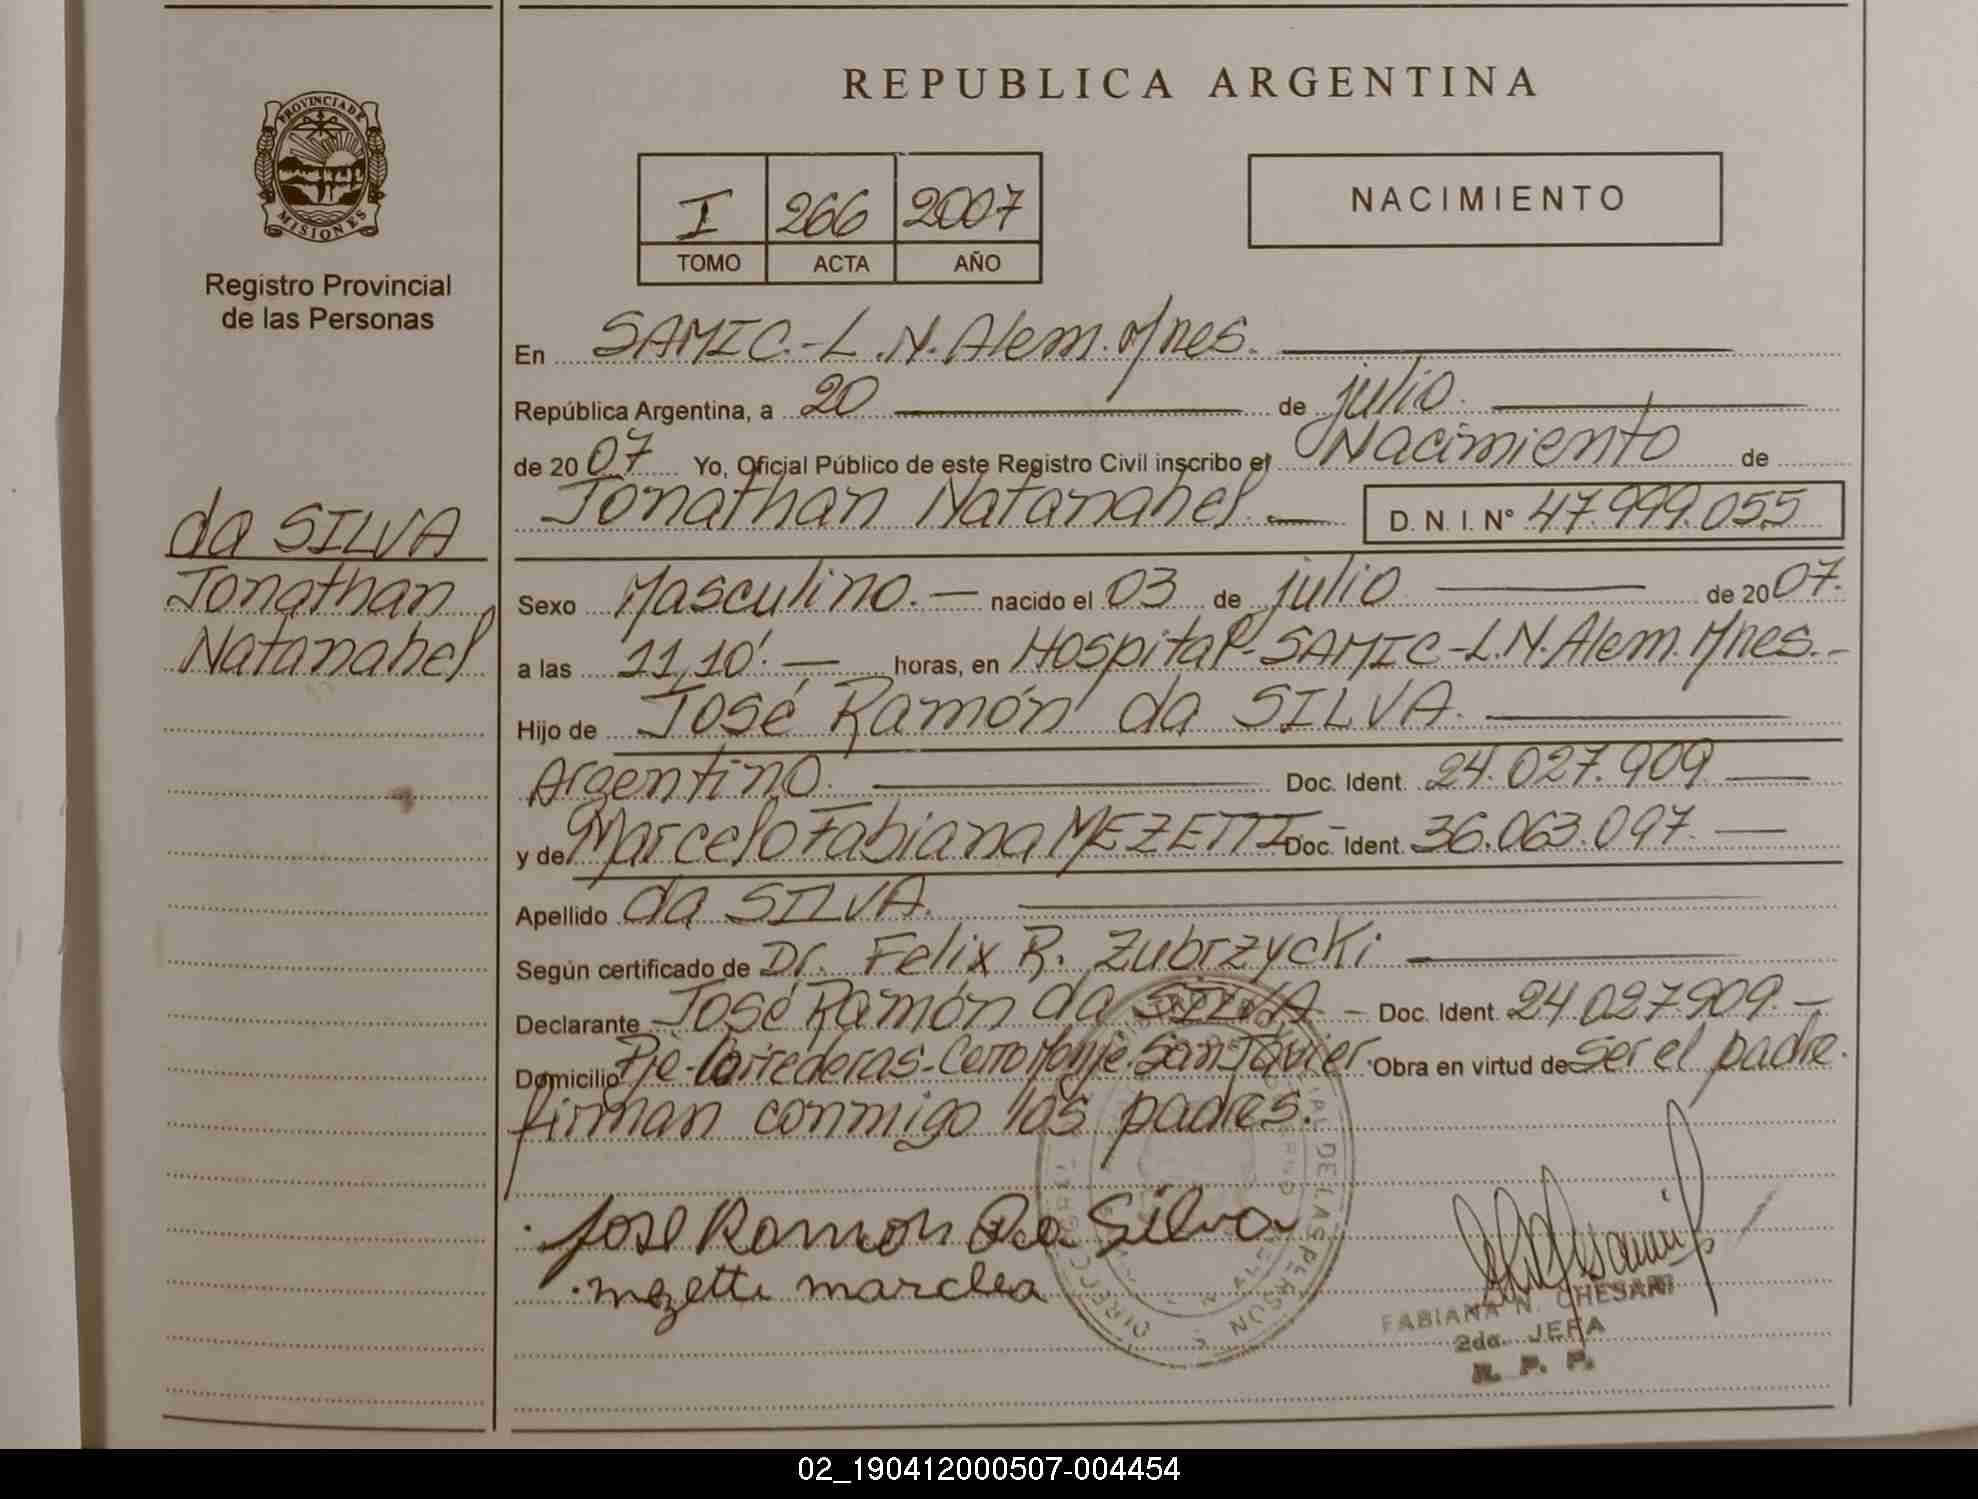 REPUBLICA ARGENTINA
PROVINCIA DE
MISIONES
Registro Provincial
de las Personas
I 266 2007
TOMO ACTA AÑO
NACIMIENTO
da SILVA
Jonathan
Natanahel
En SAMIC.-L.N.Alem.Mnes.
República Argentina, a 20 de julio
de 2007 Yo, Oficial Público de este Registro Civil inscribo el Nacimiento de
Jonathan Natanahel. D. N. I. Nº 47.999.055
Sexo Masculino.- nacido el 03 de julio de 2007.
a las 11,10'.- horas, en Hospital-SAMIC-L.N.Alem.Mnes.-
Hijo de José Ramón da SILVA.
Argentino. Doc. Ident. 24.027.909
y de Marcelo Fabiana MEZETTI- Doc. Ident. 36.063.097.
Apellido da SILVA.
Según certificado de Dr. Felix R. Zubrzycki
Declarante José Ramón da SILVA - Doc. Ident. 24.027.909.-
Domicilio Pje-Correderas-Cerro Monje.San Javier. Obra en virtud de ser el padre.
firman conmigo los padres.
Jose Ramon Da Silva
mezetti marclea
FABIANA N. CHESANI
2da. JEFA
R. P. P.
02_190412000507-004454